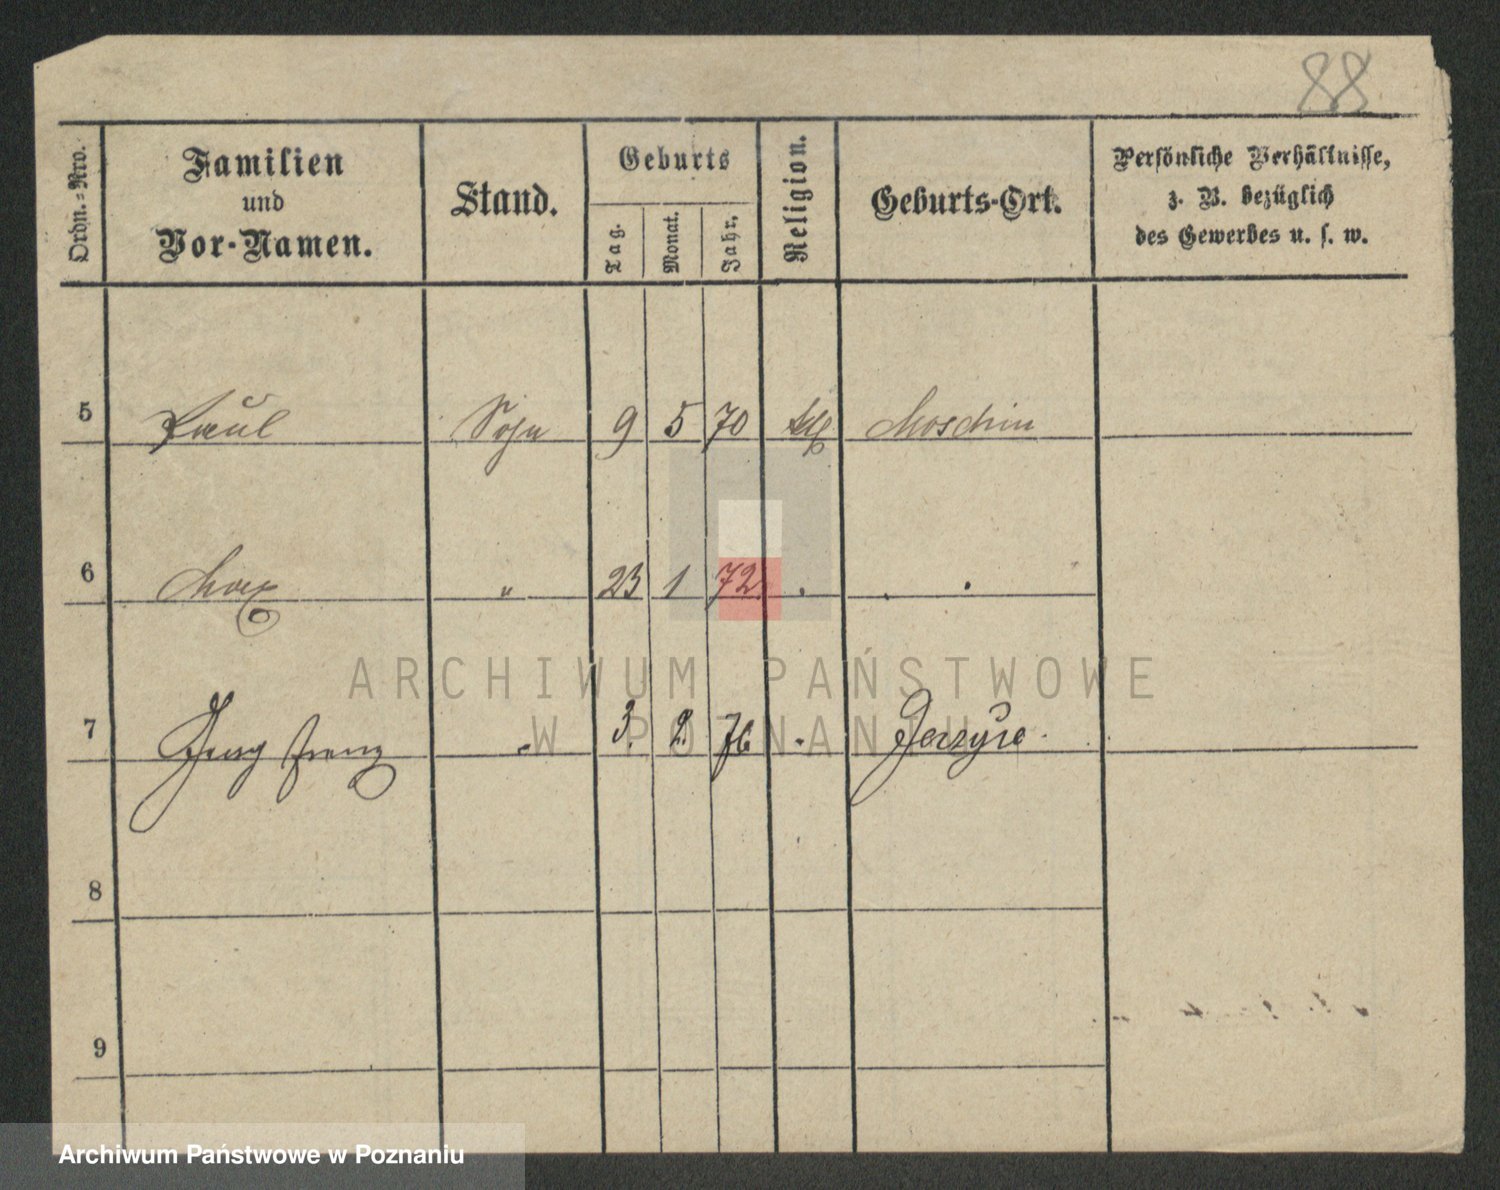 88
Ordn.-Nro.
Familien
und
Vor-Namen.
Stand.
Geburts
Tag.
Monat.
Jahr.
Religion.
Geburts-Ort.
Persönliche Verhältnisse,
z. B. bezüglich
des Gewerbes u. s. w.
5 Paul Sohn 9 5 70 Moschin
6 Max " 23 1 72
ARCHIWUM PAŃSTWOWE
W POZNANIU
7 Franz " 3. 2. 76 Jerzyce
8
9
Archiwum Państwowe w Poznaniu